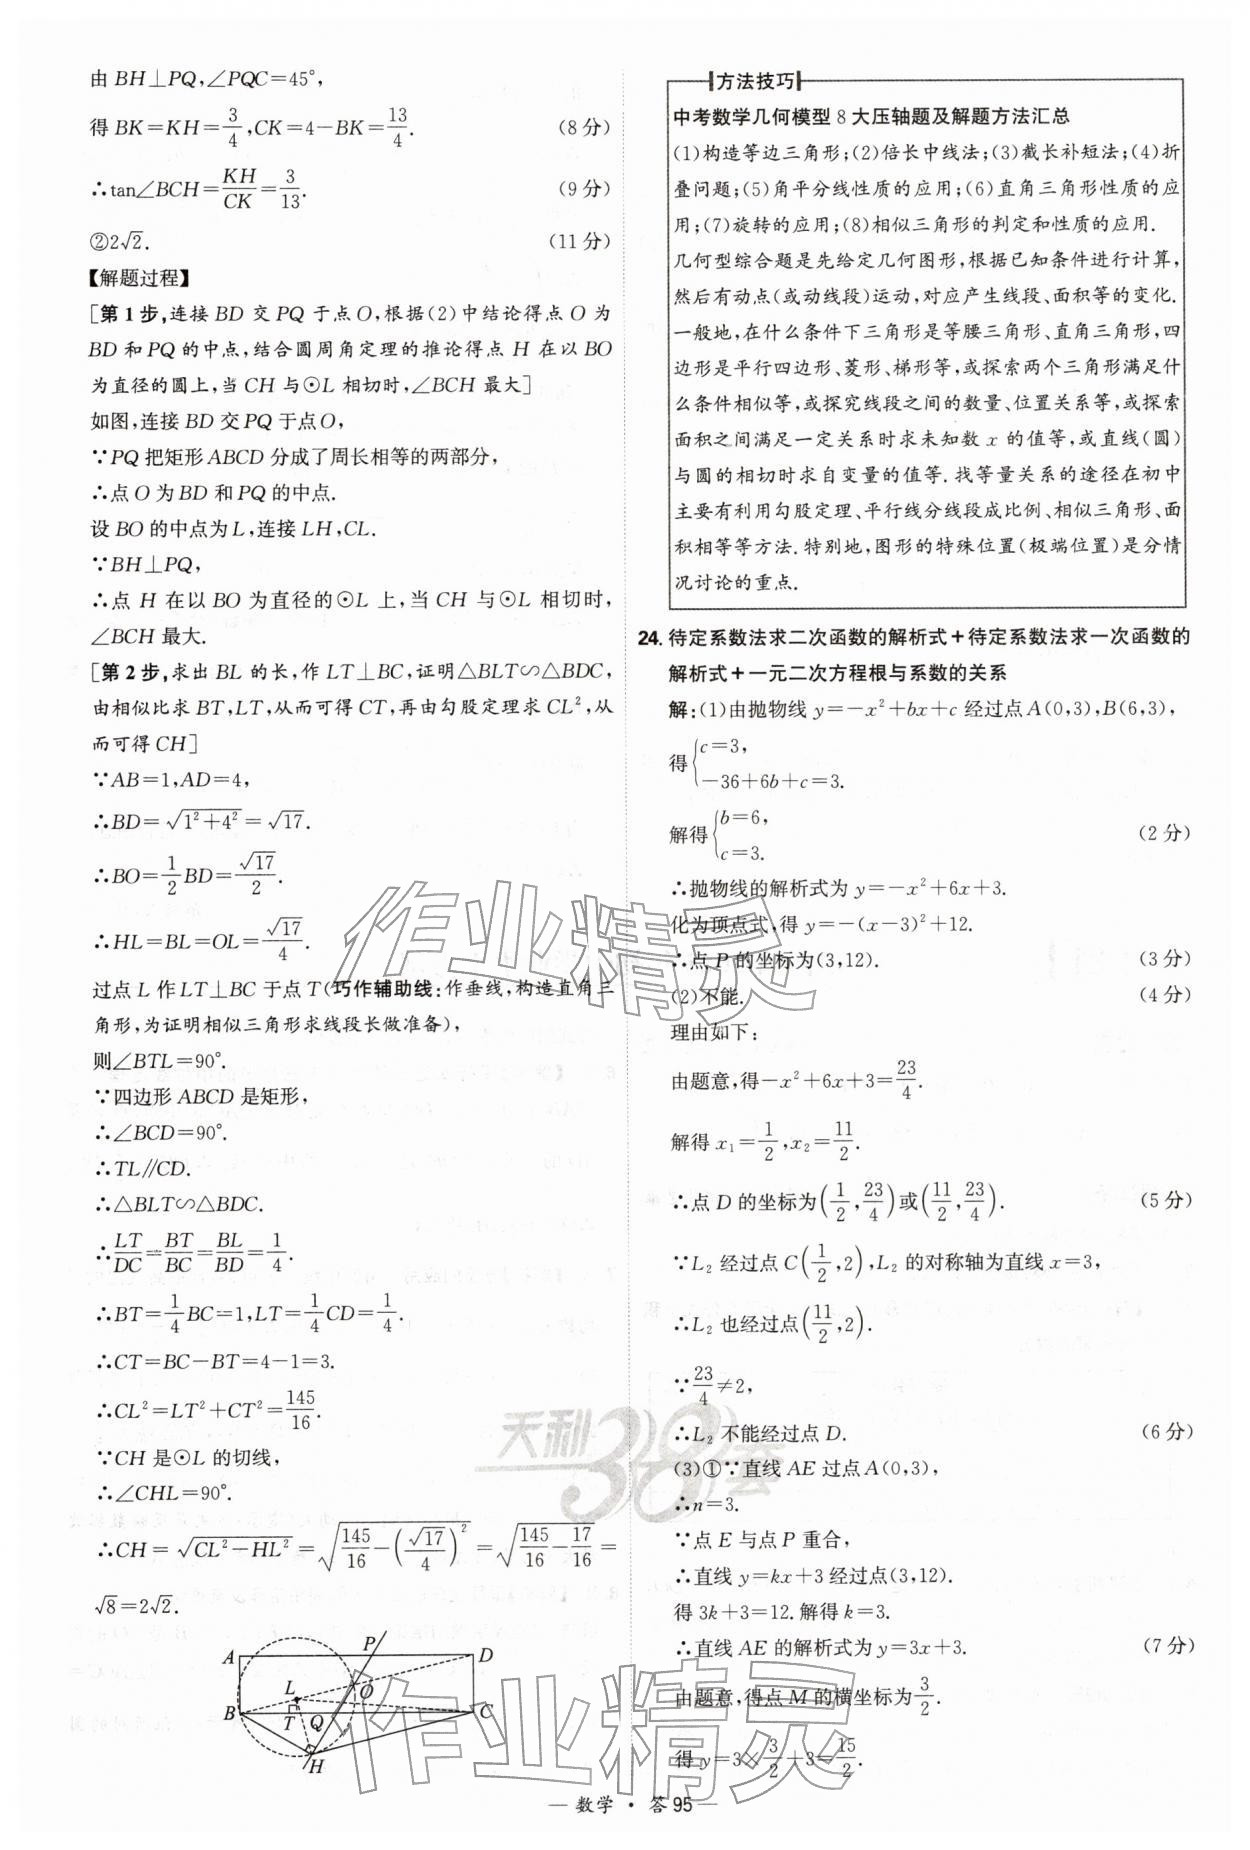 由 BH⊥PQ,∠PQC=45°,
得 BK=KH=3/4,CK=4-BK=13/4. (8 分)
∴tan∠BCH=KH/CK=3/13. (9 分)
②2√2. (11 分)
【解题过程】
[第 1 步,连接 BD 交 PQ 于点 O,根据(2)中结论得点 O 为
BD 和 PQ 的中点,结合圆周角定理的推论得点 H 在以 BO
为直径的圆上,当 CH 与⊙L 相切时,∠BCH 最大]
如图,连接 BD 交 PQ 于点 O,
∵PQ 把矩形 ABCD 分成了周长相等的两部分,
∴点 O 为 BD 和 PQ 的中点.
设 BO 的中点为 L,连接 LH,CL.
∵BH⊥PQ,
∴点 H 在以 BO 为直径的⊙L 上,当 CH 与⊙L 相切时,
∠BCH 最大.
[第 2 步,求出 BL 的长,作 LT⊥BC,证明△BLT∽△BDC,
由相似比求 BT,LT,从而可得 CT,再由勾股定理求 CL²,从
而可得 CH]
∵AB=1,AD=4,
∴BD=√(1²+4²)=√17.
∴BO=1/2BD=√17/2.
∴HL=BL=OL=√17/4.
过点 L 作 LT⊥BC 于点 T(巧作辅助线:作垂线,构造直角三
角形,为证明相似三角形求线段长做准备),
则∠BTL=90°.
∵四边形 ABCD 是矩形,
∴∠BCD=90°.
∴TL∥CD.
∴△BLT∽△BDC.
∴LT/DC=BT/BC=BL/BD=1/4.
∴BT=1/4BC=1,LT=1/4CD=1/4.
∴CT=BC-BT=4-1=3.
∴CL²=LT²+CT²=145/16.
∵CH 是⊙L 的切线,
∴∠CHL=90°.
∴CH=√(CL²-HL²)=√(145/16-(√17/4)²)=√(145/16-17/16)=
√8=2√2.
A
P
D
L
O
B
T
Q
C
H
方法技巧
中考数学几何模型 8 大压轴题及解题方法汇总
(1)构造等边三角形;(2)倍长中线法;(3)截长补短法;(4)折
叠问题;(5)角平分线性质的应用;(6)直角三角形性质的应
用;(7)旋转的应用;(8)相似三角形的判定和性质的应用.
几何型综合题是先给定几何图形,根据已知条件进行计算,
然后有动点(或动线段)运动,对应产生线段、面积等的变化.
一般地,在什么条件下三角形是等腰三角形、直角三角形,四
边形是平行四边形、菱形、梯形等,或探索两个三角形满足什
么条件相似等,或探究线段之间的数量、位置关系等,或探索
面积之间满足一定关系时求未知数 x 的值等,或直线(圆)
与圆的相切时求自变量的值等.找等量关系的途径在初中
主要有利用勾股定理、平行线分线段成比例、相似三角形、面
积相等等方法.特别地,图形的特殊位置(极端位置)是分情
况讨论的重点.
24. 待定系数法求二次函数的解析式+待定系数法求一次函数的
解析式+一元二次方程根与系数的关系
解:(1)由抛物线 y=-x²+bx+c 经过点 A(0,3),B(6,3),
得{c=3,
-36+6b+c=3.
解得{b=6, (2 分)
c=3.
∴抛物线的解析式为 y=-x²+6x+3.
化为顶点式,得 y=-(x-3)²+12.
∴点 P 的坐标为(3,12). (3 分)
(2)不能. (4 分)
理由如下:
由题意,得-x²+6x+3=23/4.
解得 x₁=1/2,x₂=11/2.
∴点 D 的坐标为(1/2,23/4)或(11/2,23/4). (5 分)
∵L₂ 经过点 C(1/2,2),L₂ 的对称轴为直线 x=3,
∴L₂ 也经过点(11/2,2).
∵23/4≠2,
∴L₂ 不能经过点 D. (6 分)
(3)①∵直线 AE 过点 A(0,3),
∴n=3.
∵点 E 与点 P 重合,
∴直线 y=kx+3 经过点(3,12).
得 3k+3=12.解得 k=3.
∴直线 AE 的解析式为 y=3x+3. (7 分)
由题意,得点 M 的横坐标为3/2.
得 y=3×3/2+3=15/2.
作业精灵
天利38套
作业精灵
— 数学 · 答 95 —